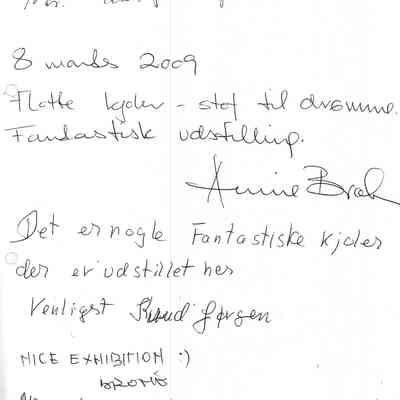 8 marts 2009
Flotte kjoler - stof til drømme.
Fantastisk udstilling.
Det er nogle Fantastiske kjoler
der er udstillet her
Venligst Knud Jørgen
NICE EXHIBITION :)